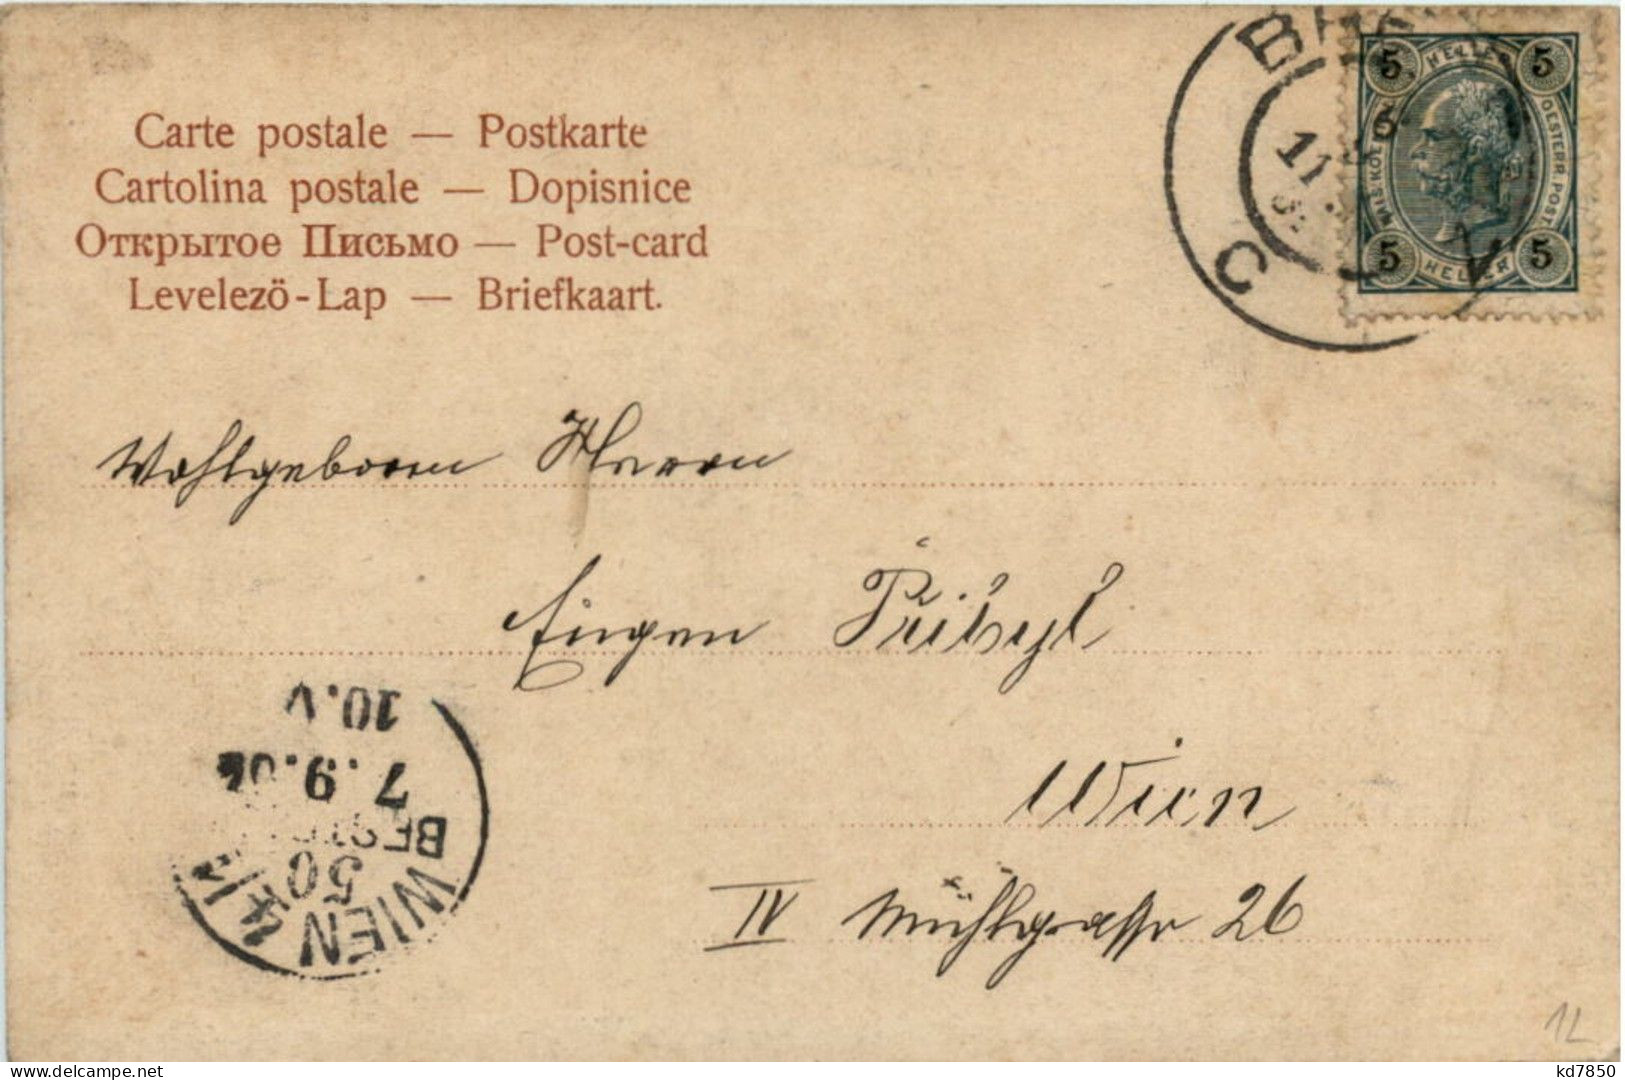 Carte postale — Postkarte
Cartolina postale — Dopisnice
Открытое Письмо — Post-card
Levelezö-Lap — Briefkaart.
5 HELLER 5
OESTERR. POST
5 HELLER 5
C
11
Wohlgeboren Herrn
Eugen Přibyl
Wien
IV Mühlgasse 26
10.V
7.9.02
WIEN 4/1
50
12
delcampe.net
kd7850